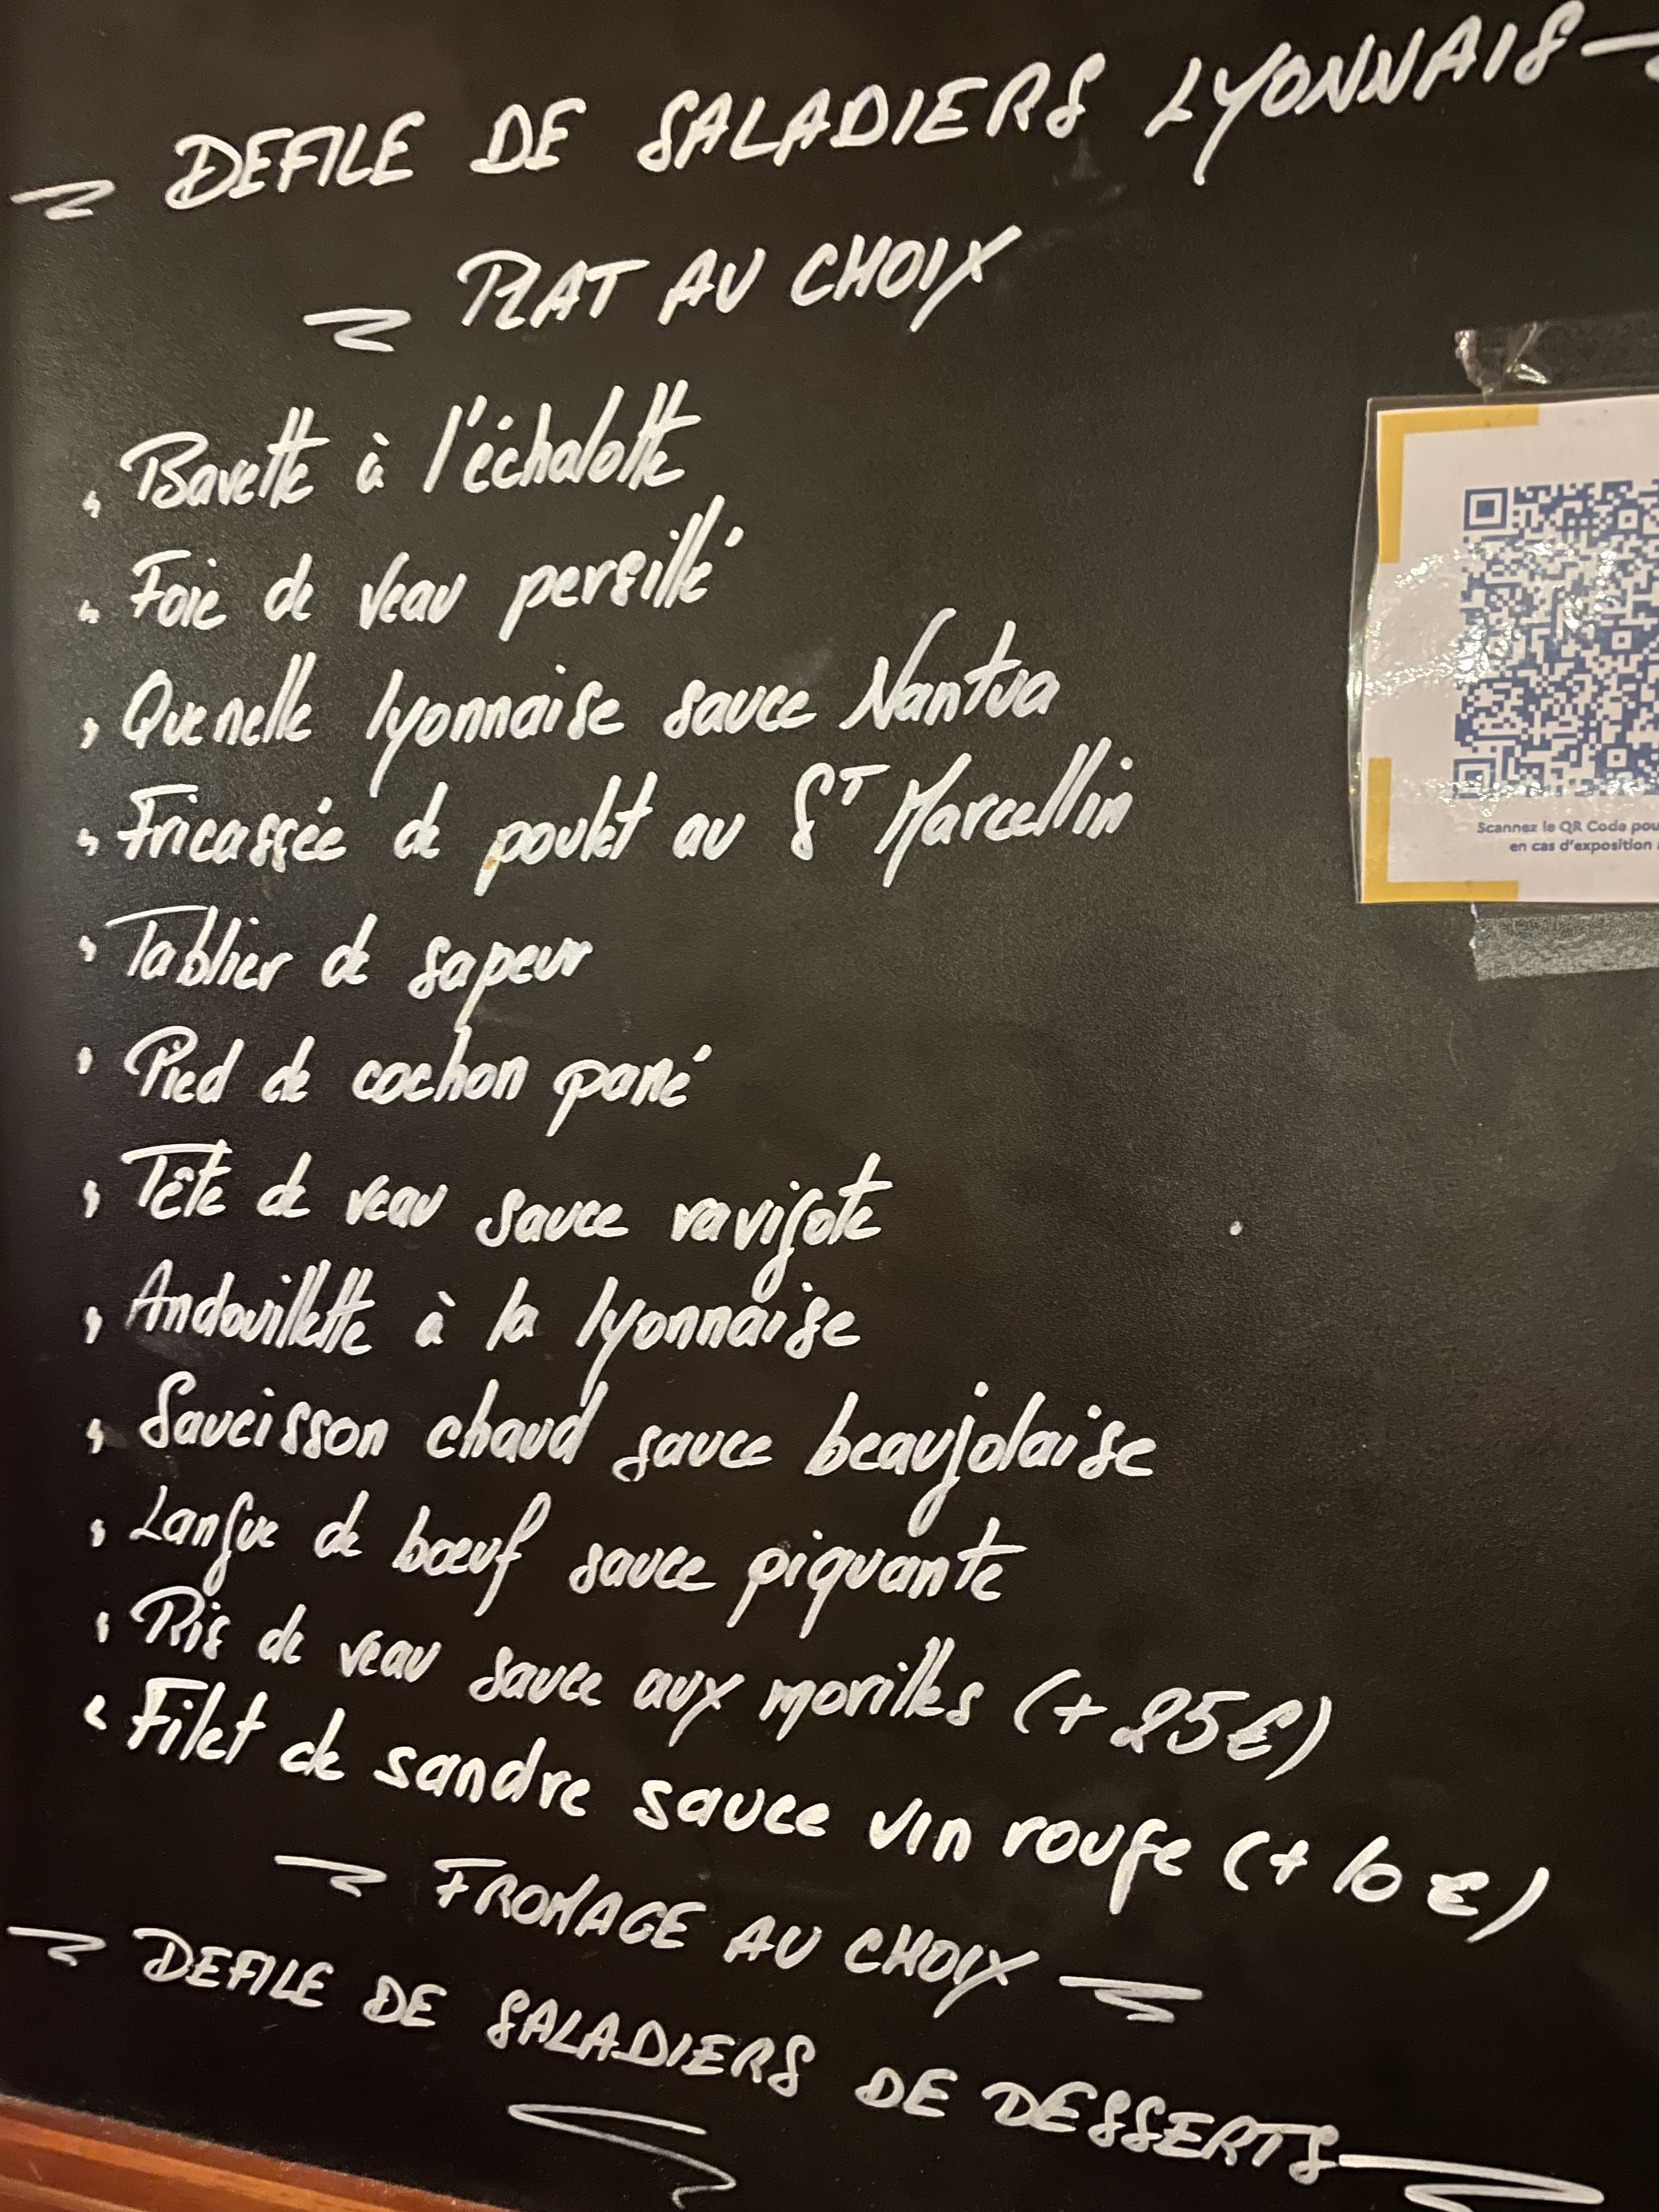 DEFILE DE SALADIERS LYONNAIS
PLAT AU CHOIX
Bavette à l'échalotte
Foie de veau persillé
Quenelle lyonnaise sauce Nantua
Fricassée de poulet au ST Marcellin
Tablier de sapeur
Pied de cochon pané
Tête de veau sauce ravigote
Andouillette à la lyonnaise
Saucisson chaud sauce beaujolaise
Langue de bœuf sauce piquante
Ris de veau sauce aux morilles (+ 25€)
Filet de sandre sauce vin rouge (+ 10€)
FROMAGE AU CHOIX
DEFILE DE SALADIERS DE DESSERTS
Scannez le QR Code pou
en cas d'exposition